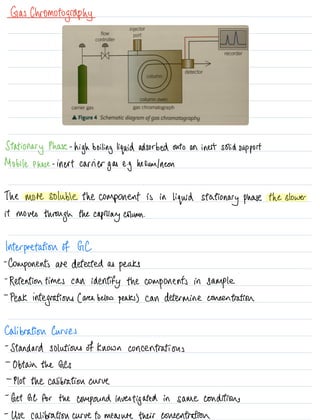 Gas Chromatography
injector
port
flow
controller
recorder
detector
column
column oven
carrier gas
gas chromatograph
▲ Figure 4 Schematic diagram of gas chromatography
Stationary Phase - high boiling liquid adsorbed onto an inert solid support
Mobile Phase - inert carrier gas e.g helium/neon
The more soluble the component is in liquid stationary phase the slower
it moves through the capillary column.
Interpretation of GC
- Components are detected as peaks
- Retention times can identify the components in sample
- Peak integrations (area below peaks) can determine concentration
Calibration Curves
- Standard solutions of known concentrations
- Obtain the GCs
- Plot the calibration curve
- Get GC for the compound investigated in same conditions
- Use calibration curve to measure their concentration